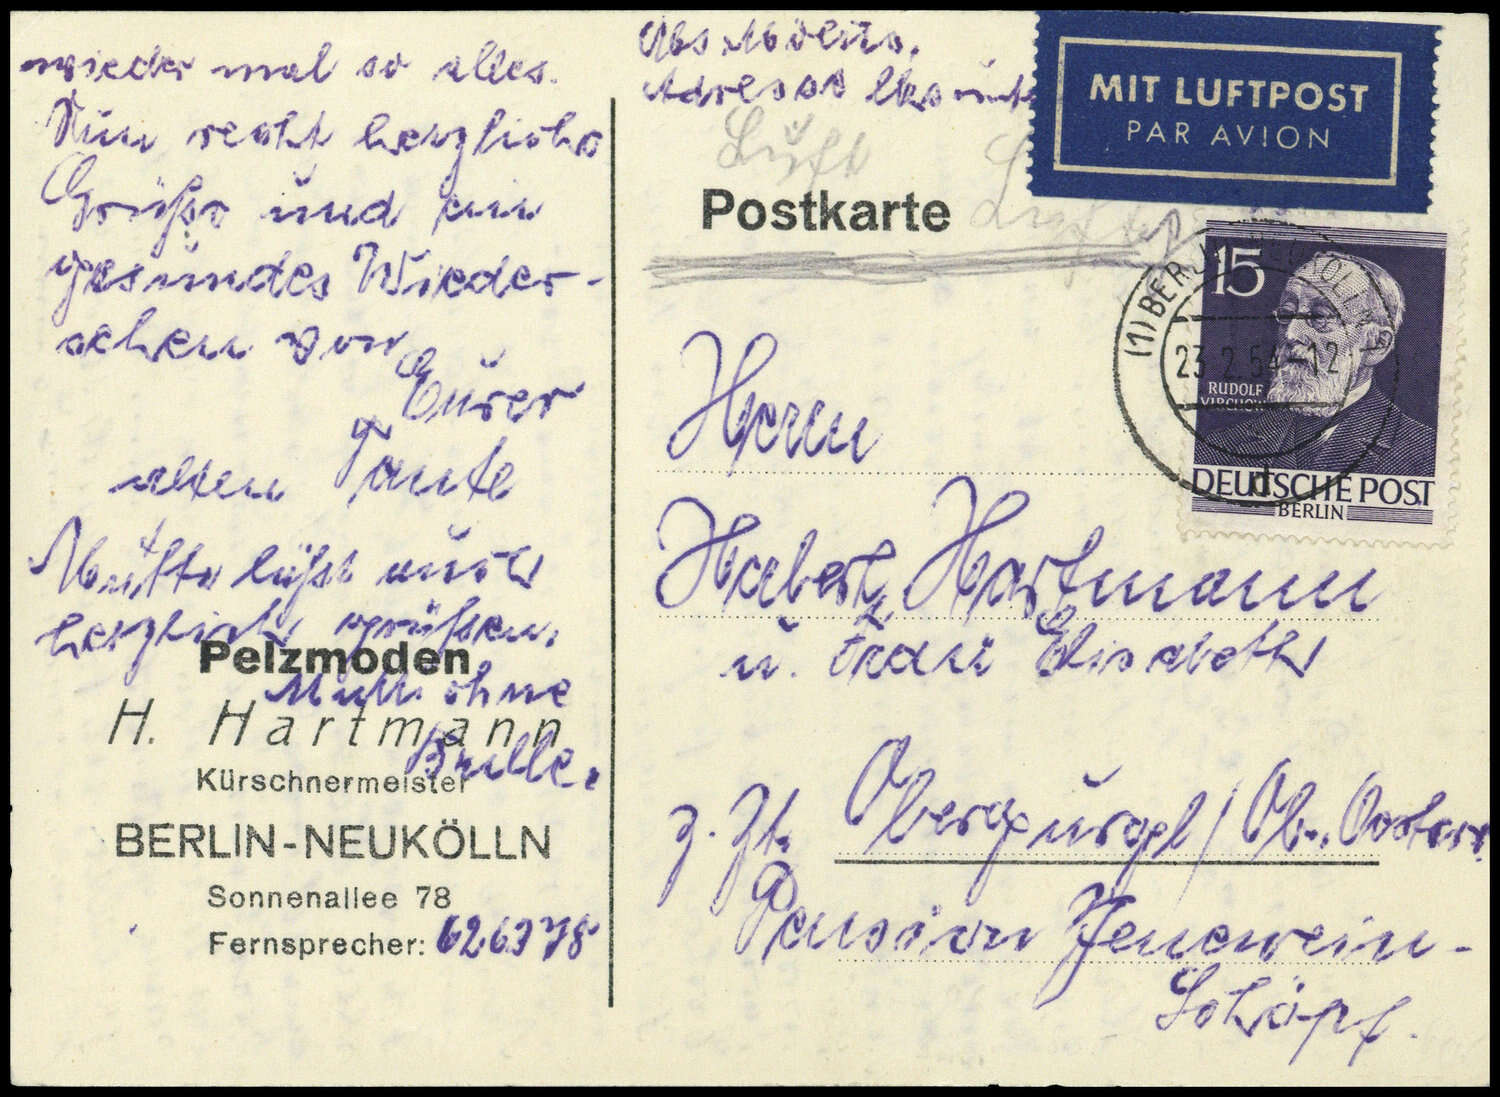 wieder mal so alles.
Nun recht herzliche
Grüße und ein
gesundes Wieder-
sehen von
Eurer
alten Tante
Mutti läßt auch
herzlich grüßen.
Mutti ohne
Brille.
Pelzmoden
H. Hartmann
Kürschnermeister
BERLIN-NEUKÖLLN
Sonnenallee 78
Fernsprecher: 626378
Abs.
Adresse
Luft
Postkarte
MIT LUFTPOST
PAR AVION
15
RUDOLF
VIRCHOW
DEUTSCHE POST
BERLIN
(1) BERLIN
23.2.54-12
d
Herrn
Herbert Hartmann
u. Frau Elisabeth
z. Zt. Obergurgl / Ob.
Pension Jenewein-
Schöpf.